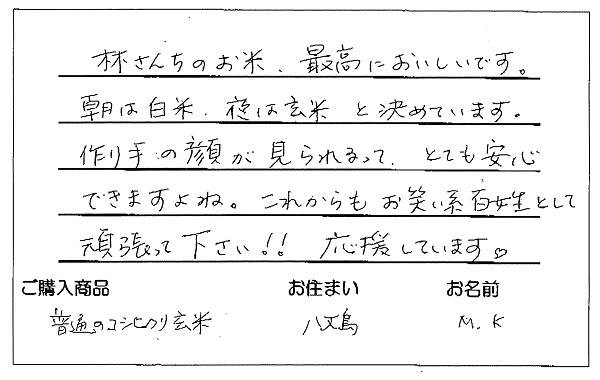 林さんちのお米、最高においしいです。
朝は白米、夜は玄米 と決めています。
作り手の顔が見られるって、とても安心
できますよね。これからもお笑い系百姓として
頑張って下さい!! 応援しています♡
ご購入商品 お住まい お名前
普通のコシヒカリ玄米 八丈島 M.K